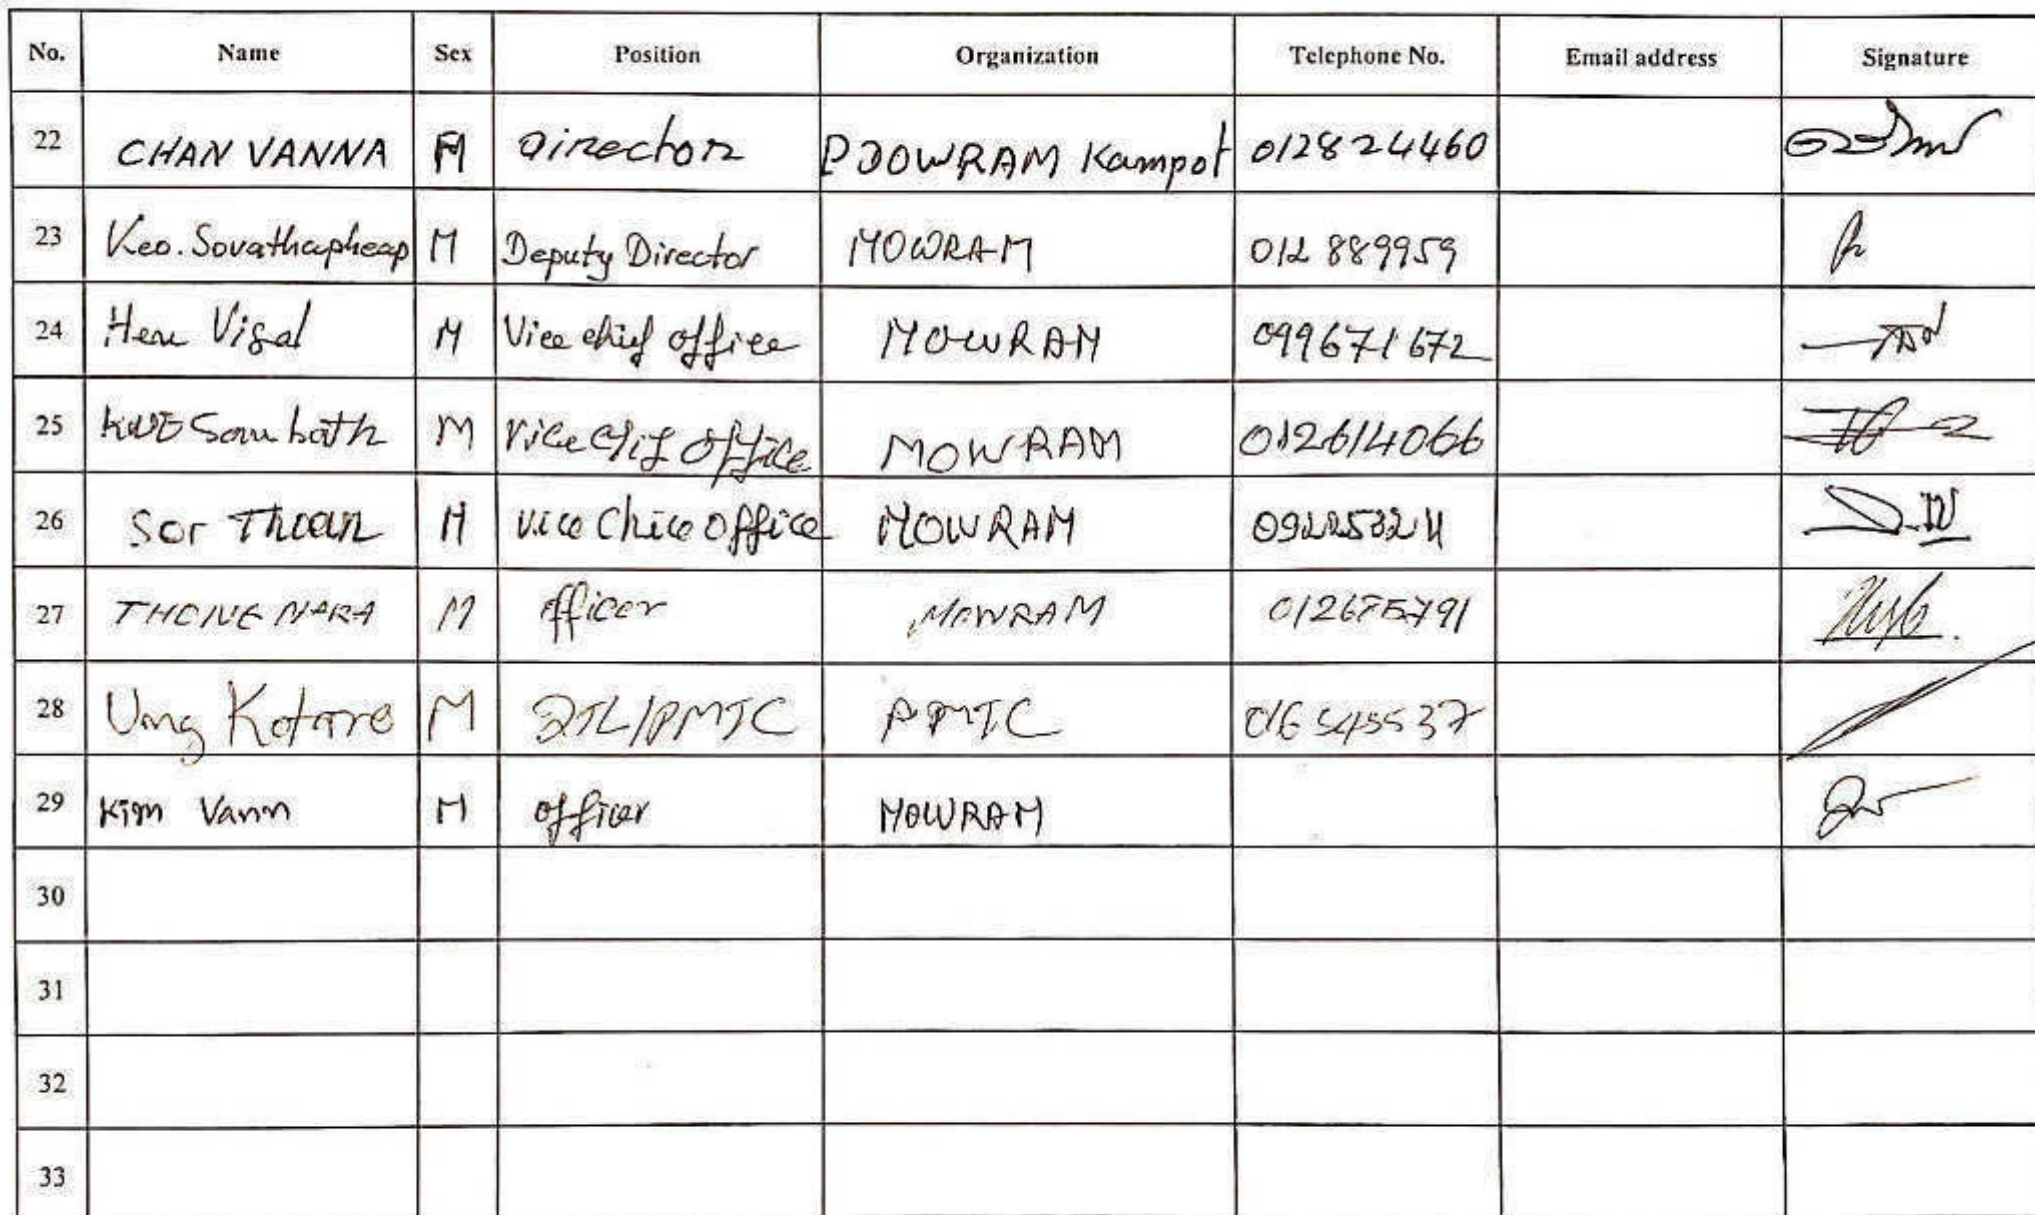 No. Name Sex Position Organization Telephone No. Email address Signature
22 CHAN VANNA Director PDOWRAM Kampot 012824460
23 Keo. Sovathapheap M Deputy Director MOWRAM 012 889959
24 Visal M Vice chief office MOWRAM 099671672
25 Sambath M Vice Chif office MOWRAM 012614066
26 Sor M Vice Chice office MOWRAM
27 NARA M officer MOWRAM
28 Ung M PMTC
29 Kim Vann M officer MOWRAM
30
31
32
33